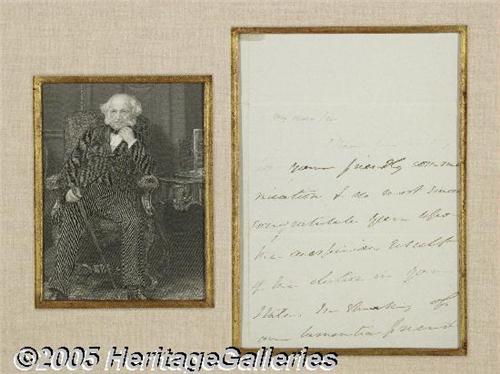 My dear Sir
your friendly commu-
nication & do most sincer
congratulate you upon
the auspicious result
of the election in your
State. In thinking of
our lamented friend
©2005 HeritageGalleries